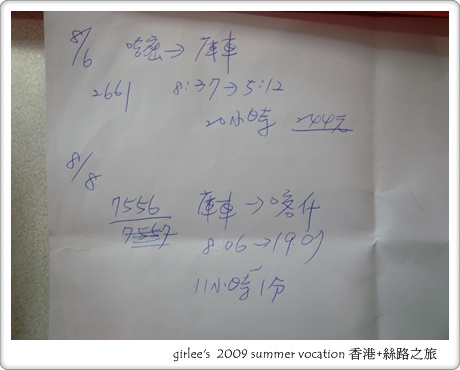 8/6 哈密→庫車
2661 8:37→5:12
20小時 244元
8/8
7556 庫車→喀什
7557 8:06→19:07
11小時1分
girlee's 2009 summer vocation 香港+絲路之旅